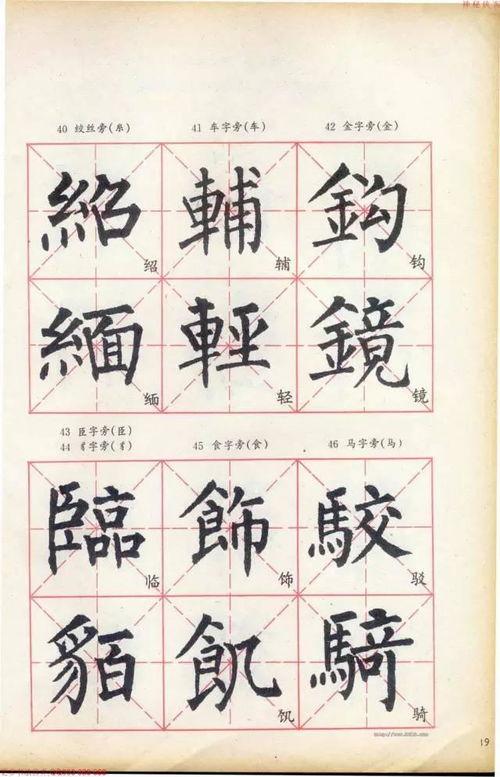 40 绞丝旁(糸) 41 车字旁(车) 42 金字旁(金)
紹 輔 鈎
绍 辅 钩
緬 輕 鏡
缅 轻 镜
43 臣字旁(臣)
44 豸字旁(豸) 45 食字旁(食) 46 马字旁(马)
臨 飾 駮
临 饰 驳
貊 飢 騎
饥 骑
19